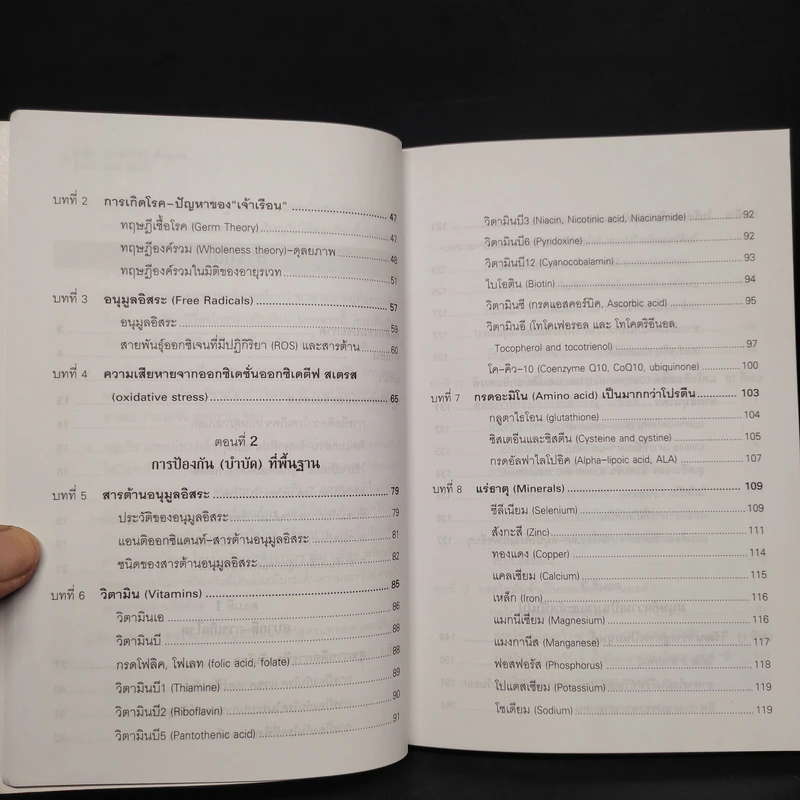 บทที่ 2 การเกิดโรค-ปัญหาของ"เจ้าเรือน" 47
ทฤษฎีเชื้อโรค (Germ Theory) 47
ทฤษฎีองค์รวม (Wholeness theory)-ดุลยภาพ 48
ทฤษฎีองค์รวมในมิติของอายุรเวท 51
บทที่ 3 อนุมูลอิสระ (Free Radicals) 57
อนุมูลอิสระ 59
สายพันธุ์ออกซิเจนที่มีปฏิกิริยา (ROS) และสารต้าน 60
บทที่ 4 ความเสียหายจากออกซิเดชั่นออกซิเดตีฟ สเตรส
(oxidative stress) 65
ตอนที่ 2
การป้องกัน (บำบัด) ที่พื้นฐาน
บทที่ 5 สารต้านอนุมูลอิสระ 79
ประวัติของอนุมูลอิสระ 79
แอนติออกซิแดนท์-สารต้านอนุมูลอิสระ 81
ชนิดของสารต้านอนุมูลอิสระ 82
บทที่ 6 วิตามิน (Vitamins) 85
วิตามินเอ 86
วิตามินบี 88
กรดโฟลิค, โฟเลท (folic acid, folate) 88
วิตามินบี1 (Thiamine) 89
วิตามินบี2 (Riboflavin) 90
วิตามินบี5 (Pantothenic acid) 91
วิตามินบี3 (Niacin, Nicotinic acid, Niacinamide) 92
วิตามินบี6 (Pyridoxine) 92
วิตามินบี12 (Cyanocobalamin) 93
ไบโอติน (Biotin) 94
วิตามินซี (กรดแอสคอร์บิค, Ascorbic acid) 95
วิตามินอี (โทโคเฟอรอล และ โทโคตริอีนอล,
Tocopherol and tocotrienol) 97
โค-คิว-10 (Coenzyme Q10, CoQ10, ubiquinone) 100
บทที่ 7 กรดอะมิโน (Amino acid) เป็นมากกว่าโปรตีน 103
กลูตาไธโอน (glutathione) 104
ซิสเตอีนและซิสตีน (Cysteine and cystine) 105
กรดอัลฟาไลโปอิค (Alpha-lipoic acid, ALA) 107
บทที่ 8 แร่ธาตุ (Minerals) 109
ซีลีเนียม (Selenium) 109
สังกะสี (Zinc) 111
ทองแดง (Copper) 114
แคลเซียม (Calcium) 115
เหล็ก (Iron) 116
แมกนีเซียม (Magnesium) 116
แมงกานีส (Manganese) 117
ฟอสฟอรัส (Phosphorus) 118
โปแตสเซียม (Potassium) 119
โซเดียม (Sodium) 119